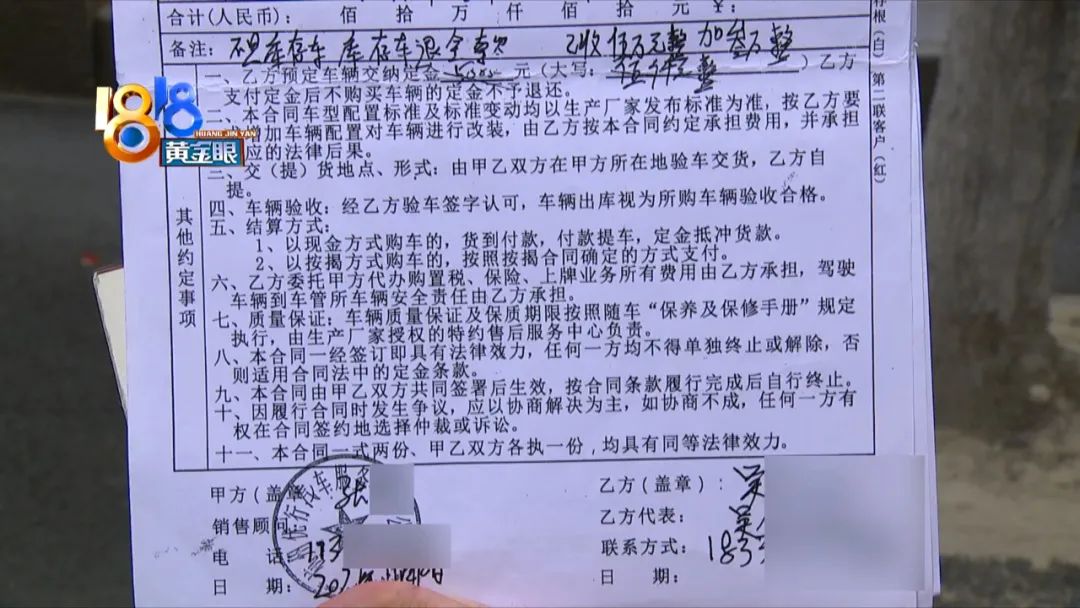 合计(人民币): 佰 拾 万 仟 佰 拾 元 ¥:
存根(白) 第二联客户(红)
备注: 库存车 库存车退全款 已收伍万元整 加叁万整
一、乙方预定车辆交纳定金5000元(大写:伍仟元整)乙方
支付定金后不购买车辆的定金不予退还。
二、本合同车型配置标准及标准变动均以生产厂家发布标准为准,按乙方要
加车辆配置对车辆进行改装,由乙方按本合同约定承担费用,并承担
应的法律后果。
三、交(提)货地点、形式:由甲乙双方在甲方所在地验车交货,乙方自
提。
四、车辆验收:经乙方验车签字认可,车辆出库视为所购车辆验收合格。
五、结算方式:
1、以现金方式购车的,货到付款,付款提车,定金抵冲货款。
2、以按揭方式购车的,按照按揭合同确定的方式支付。
六、乙方委托甲方代办购置税、保险、上牌业务所有费用由乙方承担,驾驶
车辆到车管所车辆安全责任由乙方承担。
七、质量保证:车辆质量保证及保质期限按照随车“保养及保修手册”规定
执行,由生产厂家授权的特约售后服务中心负责。
八、本合同一经签订即具有法律效力,任何一方均不得单独终止或解除,否
则适用合同法中的定金条款。
九、本合同由甲乙双方共同签署后生效,按合同条款履行完成后自行终止。
十、因履行合同时发生争议,应以协商解决为主,如协商不成,任何一方有
权在合同签约地选择仲裁或诉讼。
十一、本合同一式两份、甲乙双方各执一份,均具有同等法律效力。
其他约定事项
1818
HUANG JIN YAN
黄金眼
甲方(盖章 张
销售顾问
电 话
日 期:
乙方(盖章): 吴
乙方代表: 吴
联系方式: 183
日 期: